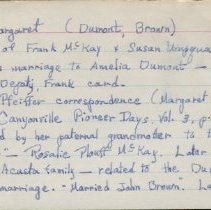 argaret (Dumont, Brown)
of Frank McKay & Susan Umpqua
marriage to Amelia Dumont -
Depatj, Frank card.
Pfeiffer correspondence (Margaret
Canyonville Pioneer Days, Vol. 3, p
d by her paternal grandmother to t
"- Rosalie Plouf McKay. Later
Acasta family - related to the Du
marriage. - Married John Brown. Le